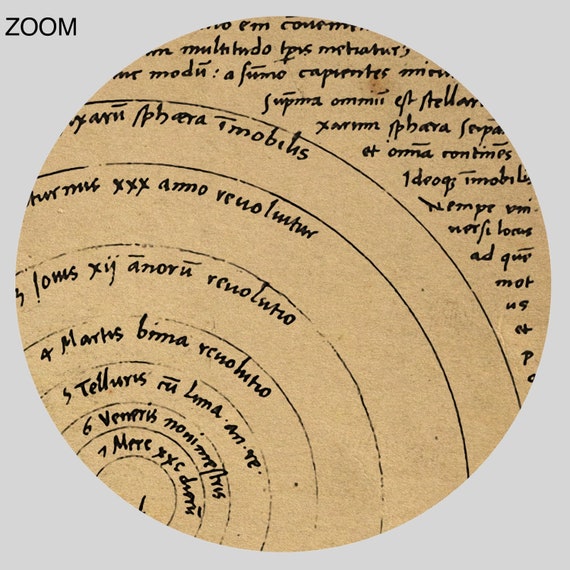 ZOOM
em
multitudo tp̄is metiatur
modū: a sūmo capientes
sup̄ma omniū est stellar
xarum sphæra seip̄a
et om̄a continēs
Ideoqꝫ īmobilis
Nempe vni
uersi locus
ad quē
mot
us
et
xarū sphæra īmobilis
turnus xxx anno reuoluitur
Iouis xij āņorū reuolutio
4 Martis bima reuolutio
5 Telluris cū Luna an. re.
6 Veneris nonimestris
7 Merc xxc dierū